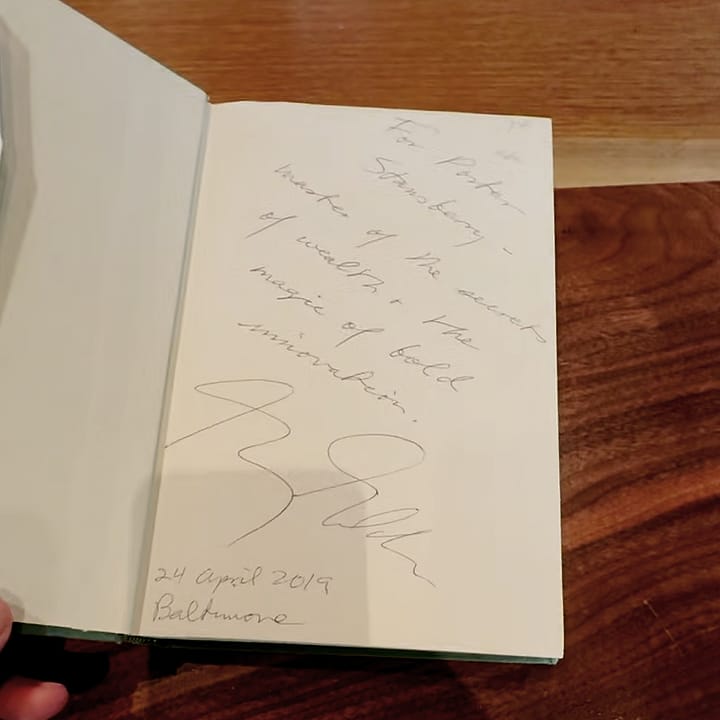 For Porter
Stansberry -
master of the secrets
of wealth + the
magic of bold
innovation.
24 April 2019
Baltimore